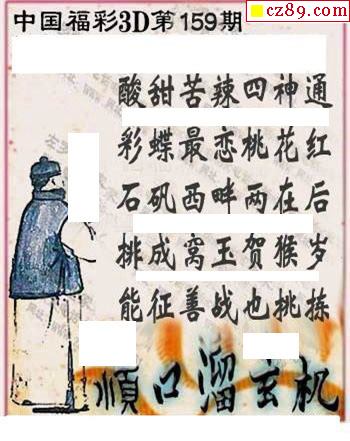 cz89.com
中国福彩3D第159期
酸甜苦辣四神通
彩蝶最恋桃花红
石矾西畔两在后
排成窝玉贺猴岁
能征善战也挑拣
顺口溜玄机